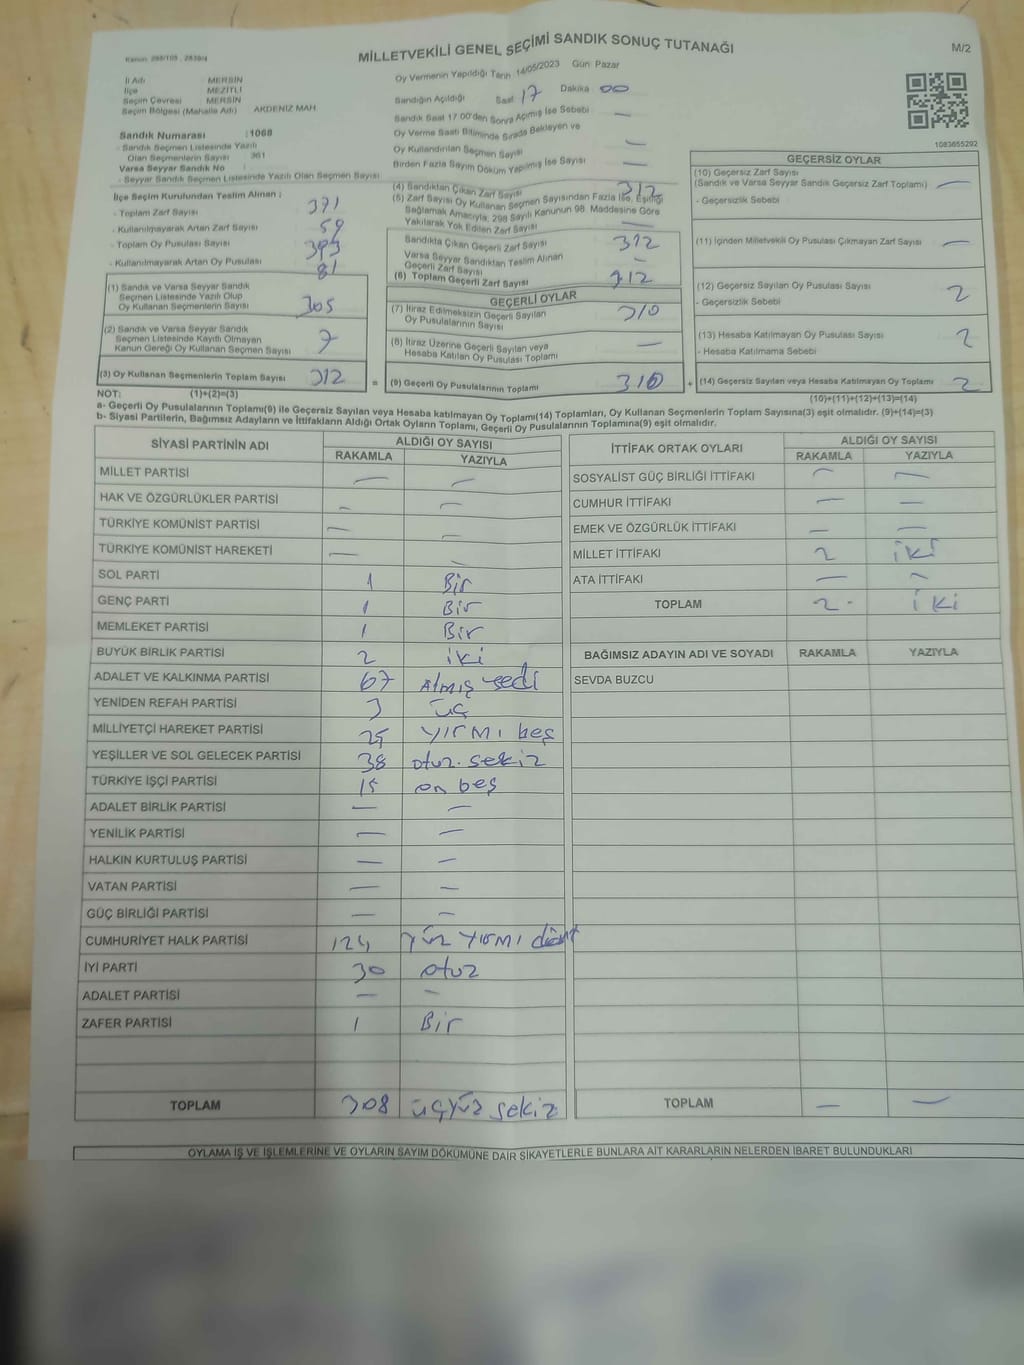 MİLLETVEKİLİ GENEL SEÇİMİ SANDIK SONUÇ TUTANAĞI
M/2
İl Adı MERSİN
İlçe MEZİTLİ
Seçim Çevresi MERSİN
Seçim Bölgesi (Mahalle Adı) AKDENİZ MAH.
Sandık Numarası : 1068
- Sandık Seçmen Listesinde Yazılı
Olan Seçmenlerin Sayısı 361
Varsa Seyyar Sandık No :
- Seyyar Sandık Seçmen Listesinde Yazılı Olan Seçmen Sayısı
Oy Vermenin Yapıldığı Tarih 14/05/2023 Gün Pazar
Sandığın Açıldığı Saat 17 Dakika 00
Sandık Saat 17.00'den Sonra Açılmış İse Sebebi —
Oy Verme Saati Bitiminde Sırada Bekleyen ve
Oy Kullandırılan Seçmen Sayısı —
Birden Fazla Sayım Döküm Yapılmış İse Sayısı —
1083655292
İlçe Seçim Kurulundan Teslim Alınan :
- Toplam Zarf Sayısı 371
- Kullanılmayarak Artan Zarf Sayısı 59
- Toplam Oy Pusulası Sayısı 393
- Kullanılmayarak Artan Oy Pusulası 81
(1) Sandık ve Varsa Seyyar Sandık
Seçmen Listesinde Yazılı Olup
Oy Kullanan Seçmenlerin Sayısı 305
(2) Sandık ve Varsa Seyyar Sandık
Seçmen Listesinde Kayıtlı Olmayan
Kanun Gereği Oy Kullanan Seçmen Sayısı 7
(3) Oy Kullanan Seçmenlerin Toplam Sayısı 312
(4) Sandıktan Çıkan Zarf Sayısı 312
(5) Zarf Sayısı Oy Kullanan Seçmen Sayısından Fazla İse, Eşitliği
Sağlamak Amacıyla; 298 Sayılı Kanunun 98. Maddesine Göre
Yakılarak Yok Edilen Zarf Sayısı —
Sandıkta Çıkan Geçerli Zarf Sayısı 312
Varsa Seyyar Sandıktan Teslim Alınan
Geçerli Zarf Sayısı —
(6) Toplam Geçerli Zarf Sayısı 312
GEÇERLİ OYLAR
(7) İtiraz Edilmeksizin Geçerli Sayılan
Oy Pusulalarının Sayısı 310
(8) İtiraz Üzerine Geçerli Sayılan veya
Hesaba Katılan Oy Pusulası Toplamı —
= (9) Geçerli Oy Pusulalarının Toplamı 310
GEÇERSİZ OYLAR
(10) Geçersiz Zarf Sayısı
(Sandık ve Varsa Seyyar Sandık Geçersiz Zarf Toplamı) —
- Geçersizlik Sebebi
(11) İçinden Milletvekili Oy Pusulası Çıkmayan Zarf Sayısı —
(12) Geçersiz Sayılan Oy Pusulası Sayısı 2
- Geçersizlik Sebebi
(13) Hesaba Katılmayan Oy Pusulası Sayısı 2
- Hesaba Katılmama Sebebi
+ (14) Geçersiz Sayılan veya Hesaba Katılmayan Oy Toplamı 2
NOT: (1)+(2)=(3)
(10)+(11)+(12)+(13)=(14)
a- Geçerli Oy Pusulalarının Toplamı(9) ile Geçersiz Sayılan veya Hesaba katılmayan Oy Toplamı(14) Toplamları, Oy Kullanan Seçmenlerin Toplam Sayısına(3) eşit olmalıdır. (9)+(14)=(3)
b- Siyasi Partilerin, Bağımsız Adayların ve İttifakların Aldığı Ortak Oyların Toplamı, Geçerli Oy Pusulalarının Toplamına(9) eşit olmalıdır.
SİYASİ PARTİNİN ADI ALDIĞI OY SAYISI
RAKAMLA YAZIYLA
MİLLET PARTİSİ — —
HAK VE ÖZGÜRLÜKLER PARTİSİ — —
TÜRKİYE KOMÜNİST PARTİSİ — —
TÜRKİYE KOMÜNİST HAREKETİ — —
SOL PARTİ 1 Bir
GENÇ PARTİ 1 Bir
MEMLEKET PARTİSİ 1 Bir
BÜYÜK BİRLİK PARTİSİ 2 iki
ADALET VE KALKINMA PARTİSİ 67 Atmış yedi
YENİDEN REFAH PARTİSİ 3 üç
MİLLİYETÇİ HAREKET PARTİSİ 25 yirmi beş
YEŞİLLER VE SOL GELECEK PARTİSİ 38 otuz sekiz
TÜRKİYE İŞÇİ PARTİSİ 15 on beş
ADALET BİRLİK PARTİSİ — —
YENİLİK PARTİSİ — —
HALKIN KURTULUŞ PARTİSİ — —
VATAN PARTİSİ — —
GÜÇ BİRLİĞİ PARTİSİ — —
CUMHURİYET HALK PARTİSİ 124 yüz yirmi dört
İYİ PARTİ 30 otuz
ADALET PARTİSİ — —
ZAFER PARTİSİ 1 Bir
TOPLAM 308 üçyüz sekiz
İTTİFAK ORTAK OYLARI ALDIĞI OY SAYISI
RAKAMLA YAZIYLA
SOSYALİST GÜÇ BİRLİĞİ İTTİFAKI — —
CUMHUR İTTİFAKI — —
EMEK VE ÖZGÜRLÜK İTTİFAKI — —
MİLLET İTTİFAKI 2 iki
ATA İTTİFAKI — —
TOPLAM 2 iki
BAĞIMSIZ ADAYIN ADI VE SOYADI RAKAMLA YAZIYLA
SEVDA BUZCU
TOPLAM — —
OYLAMA İŞ VE İŞLEMLERİNE VE OYLARIN SAYIM DÖKÜMÜNE DAİR ŞİKAYETLERLE BUNLARA AİT KARARLARIN NELERDEN İBARET BULUNDUKLARI